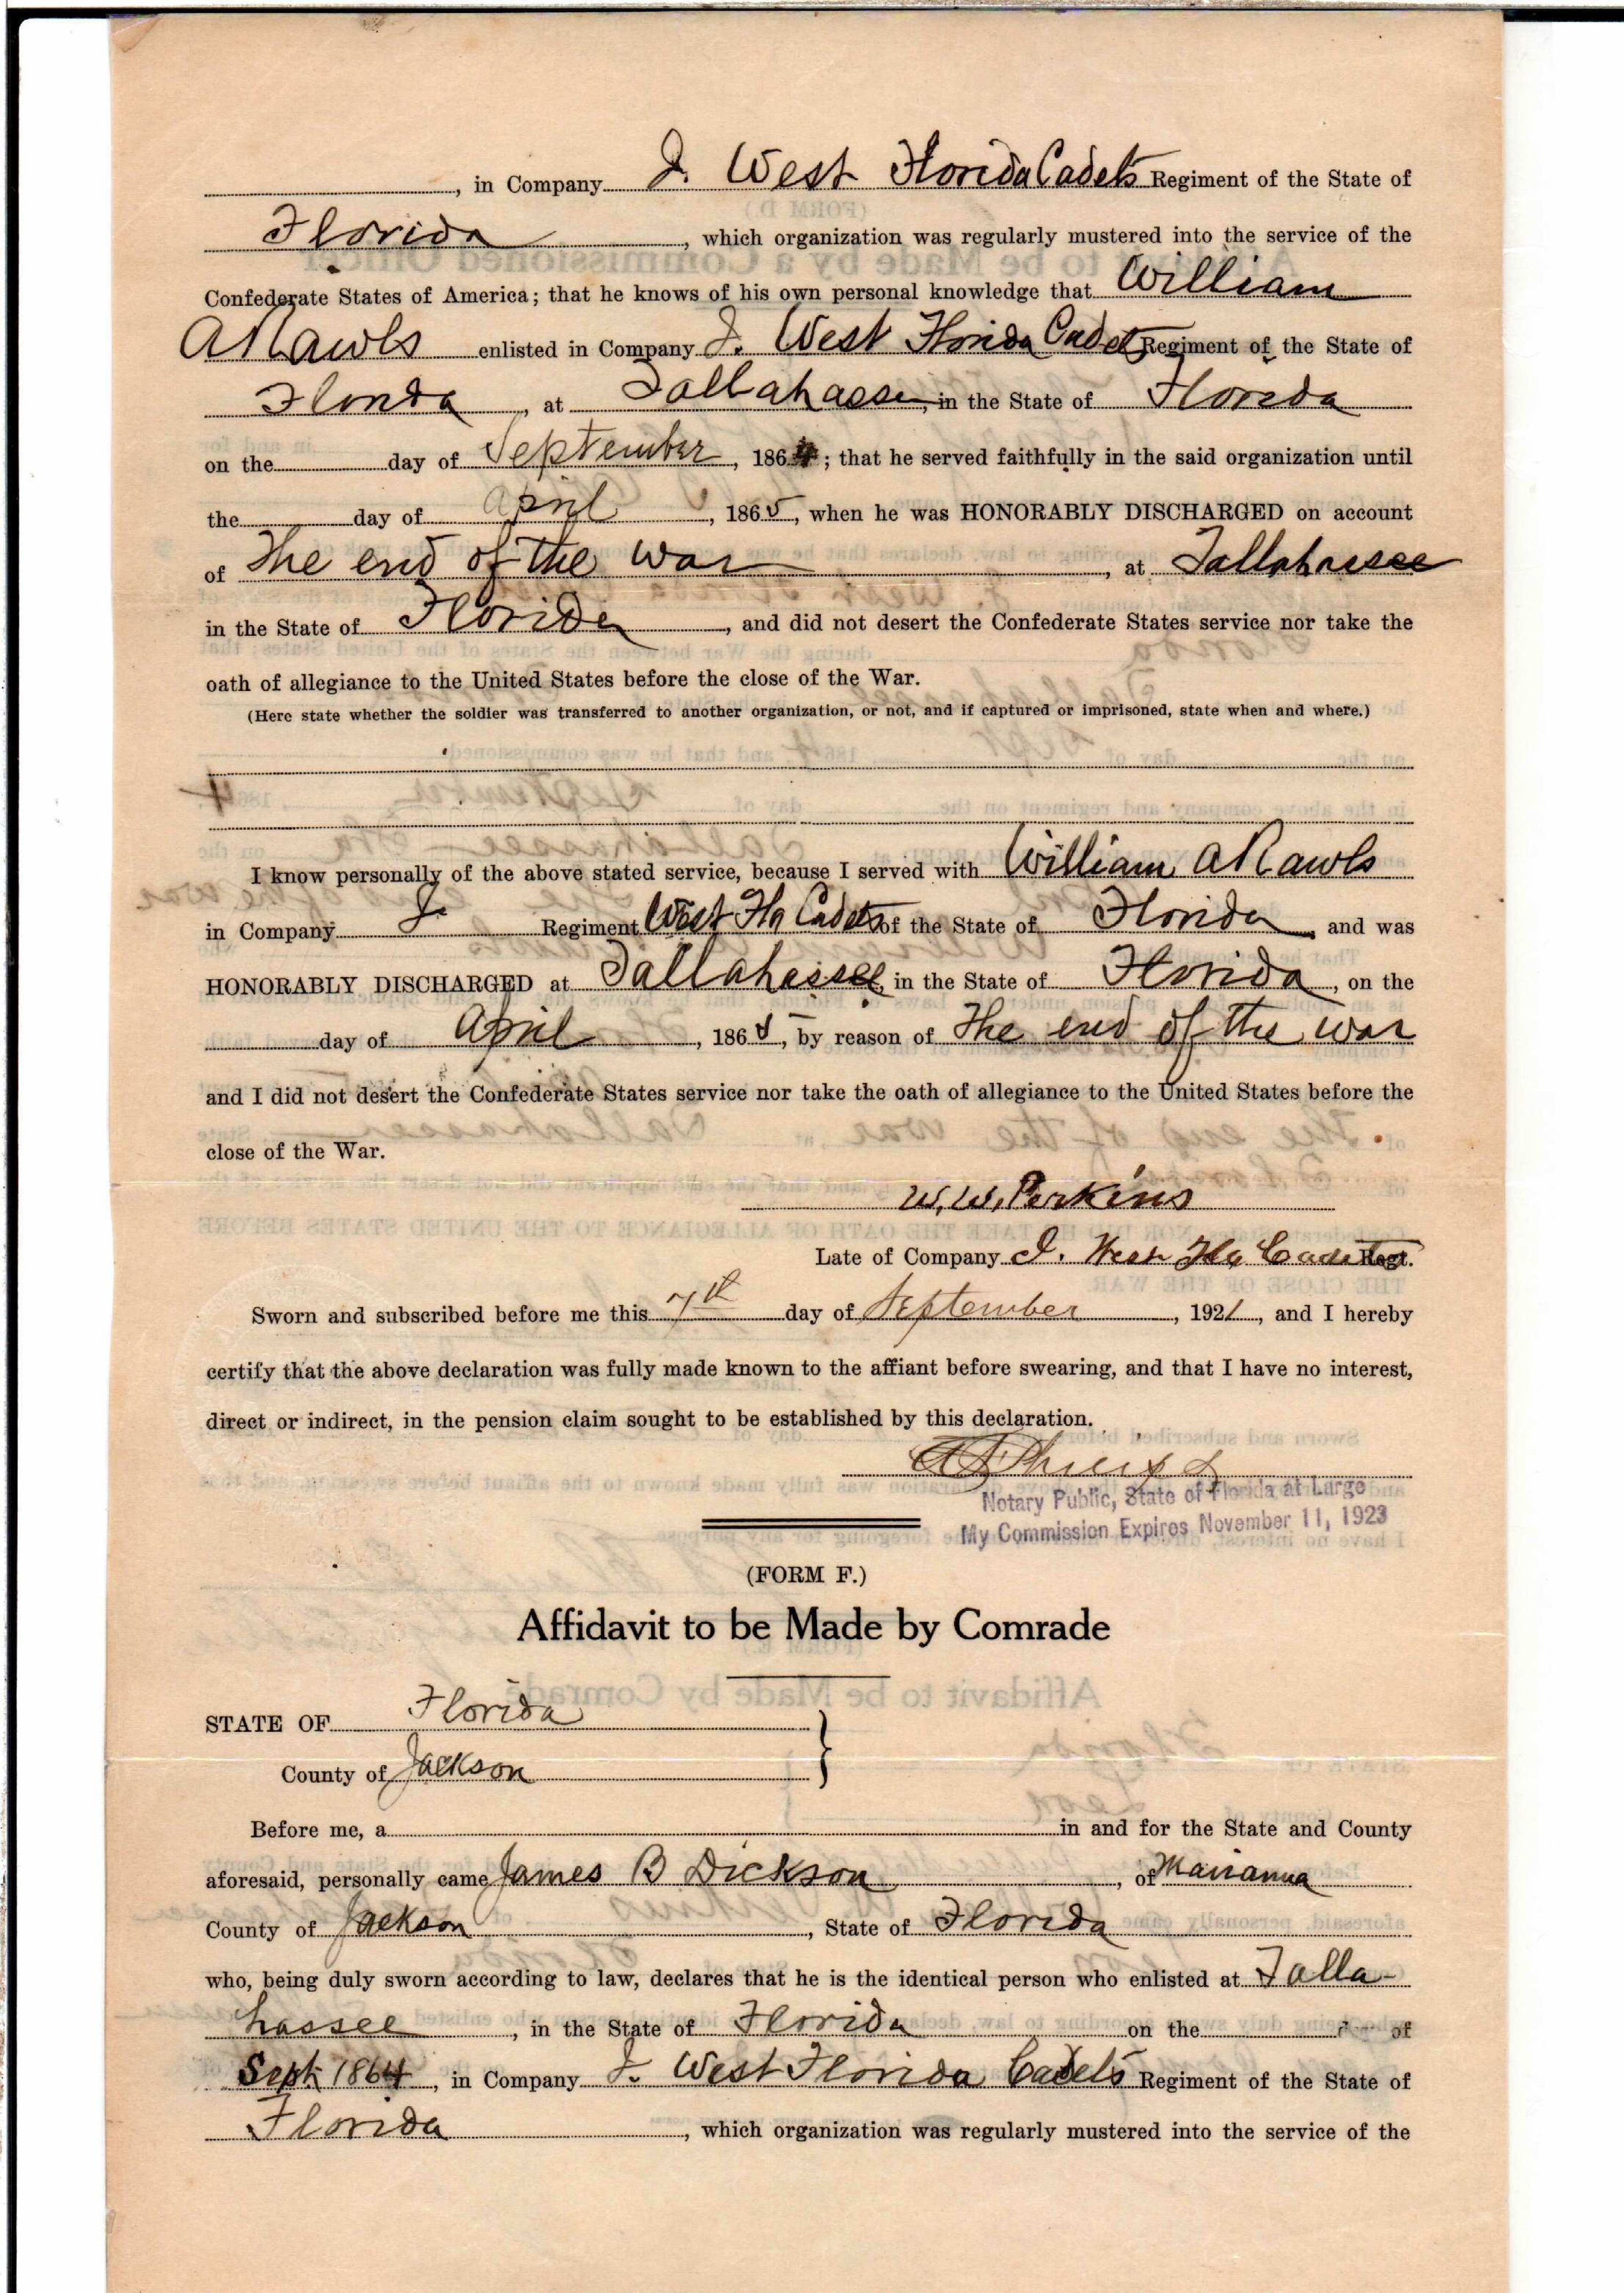 , in Company J. West Florida Cadets Regiment of the State of
Florida, which organization was regularly mustered into the service of the
Confederate States of America; that he knows of his own personal knowledge that William
A Rawls enlisted in Company J. West Florida Cadets Regiment of the State of
Florida, at Tallahassee, in the State of Florida
on the day of September, 1864; that he served faithfully in the said organization until
the day of April, 1865, when he was HONORABLY DISCHARGED on account
of The end of the war, at Tallahassee
in the State of Florida, and did not desert the Confederate States service nor take the
oath of allegiance to the United States before the close of the War.
(Here state whether the soldier was transferred to another organization, or not, and if captured or imprisoned, state when and where.)
I know personally of the above stated service, because I served with William A Rawls
in Company J. Regiment West Fla Cadets of the State of Florida and was
HONORABLY DISCHARGED at Tallahassee, in the State of Florida, on the
day of April, 1865, by reason of The end of the war
and I did not desert the Confederate States service nor take the oath of allegiance to the United States before the
close of the War.
W. W. Perkins
Late of Company J. West Fla Cadets Regt.
Sworn and subscribed before me this 7th day of September, 1921, and I hereby
certify that the above declaration was fully made known to the affiant before swearing, and that I have no interest,
direct or indirect, in the pension claim sought to be established by this declaration.
Notary Public, State of Florida at Large
My Commission Expires November 11, 1923
(FORM F.)
Affidavit to be Made by Comrade
STATE OF Florida
County of Jackson
Before me, a in and for the State and County
aforesaid, personally came James B Dickson, of Marianna
County of Jackson, State of Florida
who, being duly sworn according to law, declares that he is the identical person who enlisted at Talla-
hassee, in the State of Florida on the day of
Sept 1864, in Company J. West Florida Cadets Regiment of the State of
Florida, which organization was regularly mustered into the service of the